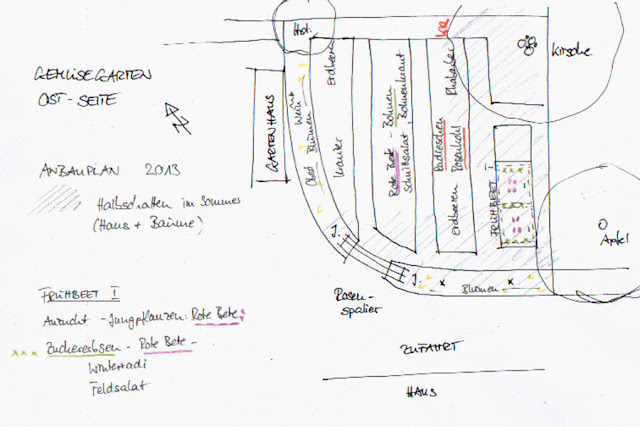 GEMÜSEGARTEN
OST-SEITE
ANBAUPLAN 2013
Halbschatten im Sommer
(Haus + Bäume)
FRÜHBEET I
Anzucht - Jungpflanzen: Rote Bete
xxx Zuckererbsen - Rote Bete -
Winterradi
Feldsalat
GARTENHAUS
Obst Blumen
Wein
Kräuter
Erdbeeren
Rote Bete - Bohnen
Schnittsalat, Bohnenkraut
Radieschen
Rosenkohl
Erdbeeren
Rhabarber
FRÜHBEET I
Kirsche
Apfel
J.
J.
Rosen-
spalier
Blumen
ZUFAHRT
HAUS